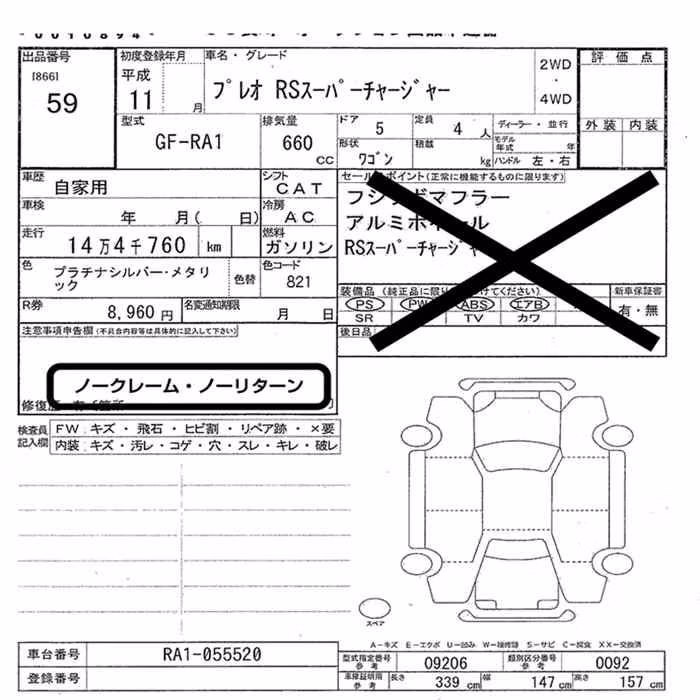 出品番号 初度登録年月 車名・グレード 評価点
[866] 平成 2WD
59 11 月 プレオ RSスーパーチャージャー ・
4WD
型式 排気量 ドア 5 定員 4 人 ディーラー・並行 外装 内装
GF-RA1 660 cc 形状 ワゴン 積載 kg モデル年式 年
ハンドル 左・右
車歴 自家用 シフト CAT セールスポイント(正常に機能するものに限ります)
フジツボマフラー
車検 年 月( 日) 冷房 AC アルミホイール
走行 14万4千760 km 燃料 ガソリン RSスーパーチャージャー
色 プラチナシルバー・メタリック 色替 色コード 821
装備品(純正品に限り を付けてください) 新車保証書
PS PW ABS エアB 有・無
SR TV カワ
R券 8,960円 名変通知期限 月 日
後日品
注意事項申告欄(不具合内容等は具体的に記入して下さい)
ノークレーム・ノーリターン
検査員記入欄 FW キズ・飛石・ヒビ割・リペア跡・×要
内装 キズ・汚レ・コゲ・穴・スレ・キレ・破レ
スペア
A-キズ E-エクボ U-凹み W-補修跡 S-サビ C-腐食 XX-交換済
車台番号 RA1-055520 型式指定番号参考 09206 類別区分番号参考 0092
登録番号 車庫証明用参考 長さ 339 cm 幅 147 cm 高さ 157 cm